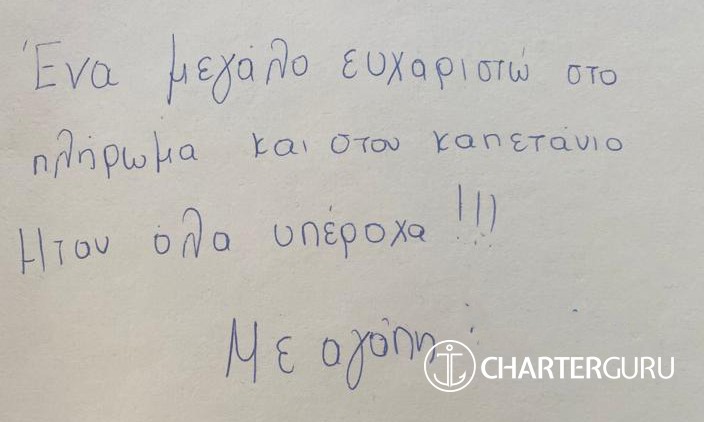 Ένα μεγάλο ευχαριστώ στο
πλήρωμα και στον καπετάνιο
Ήταν όλα υπέροχα !!!
Με αγάπη
CHARTERGURU